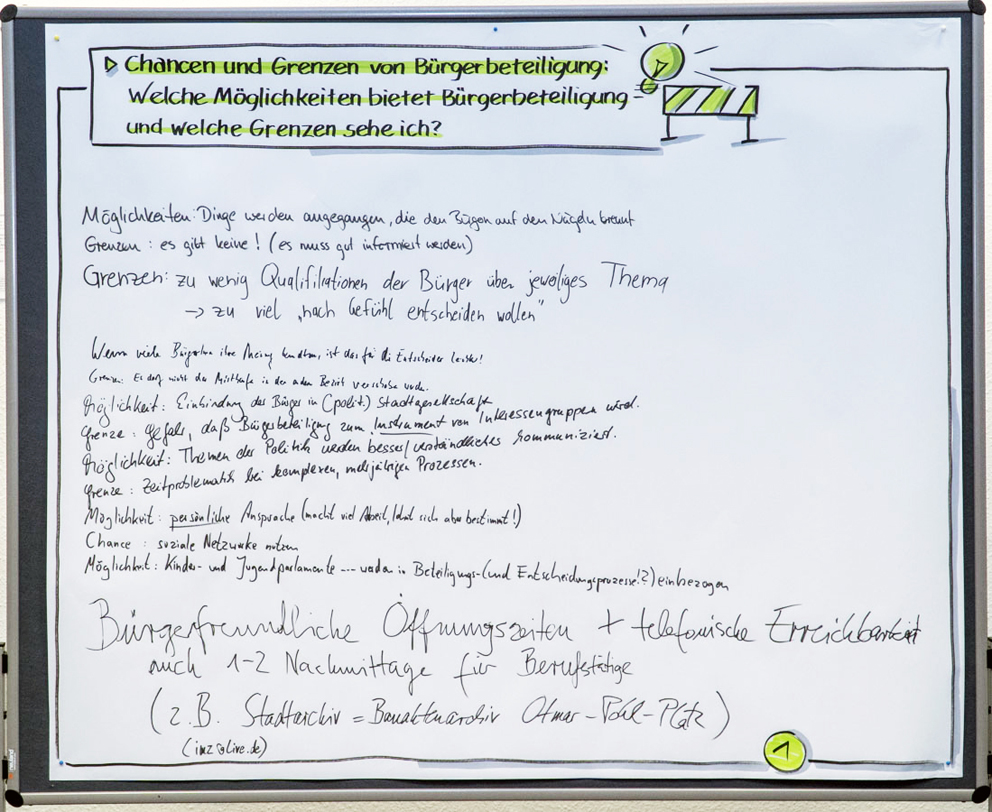 Chancen und Grenzen von Bürgerbeteiligung:
Welche Möglichkeiten bietet Bürgerbeteiligung –
und welche Grenzen sehe ich?
Möglichkeiten: Dinge werden angegangen, die den Bürgen auf den Nägeln brennt
Grenzen: es gibt keine! (es muss gut informiert werden)
Grenzen: zu wenig Qualifiliationen der Bürger über jeweiliges Thema
→ zu viel „nach Gefühl entscheiden wollen"
Wenn viele Bürger ihre Meinung kundtun, ist das für die Entscheider leichter!
Grenze: Es darf nicht der Misthaufe in den anderen Bezirk verschoben werden.
Möglichkeit: Einbindung der Bürger in (polit.) Stadtgesellschaft
Grenze: Gefahr, daß Bürgerbeteiligung zum Instrument von Interessengruppen wird.
Möglichkeit: Themen der Politik werden besser/verständliches kommuniziert.
Grenze: Zeitproblematik bei komplexen, mehrjährigen Prozessen.
Möglichkeit: persönliche Ansprache (macht viel Arbeit, lohnt sich aber bestimmt!)
Chance: soziale Netzwerke nutzen
Möglichkeit: Kinder- und Jugendparlamente --- werden in Beteiligungs-(und Entscheidungsprozesse!?) einbezogen
Bürgerfreundliche Öffnungszeiten + telefonische Erreichbarkeit
auch 1-2 Nachmittage für Berufstätige
(z.B. Stadtarchiv = Bauaktenarchiv Otmar-Pohl-Platz)
(imz@live.de)
1